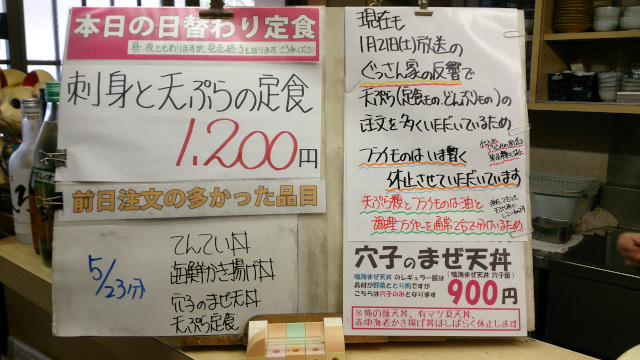 本日の日替わり定食
昼、夜ともありますが、売切れ終了となります ご了承ください
刺身と天ぷらの定食
1,200円
前日注文の多かった品目
5/23分
てんてい丼
海鮮かき揚げ丼
穴子のまぜ天丼
天ぷら定食
現在も
1月21日(土)放送の
ぐっさん家の反響で
天ぷら(定食もの、どんぶりもの)の
注文を多くいただいているため
フライものはいま暫く
休止させていただいています
天ぷら類とフライものは油と
穴子のまぜ天丼
鳴海まぜ天丼 のレギュラー版は
具材が野菜ととり肉ですが
こちらは穴子のみとなります
(鳴海まぜ天丼 穴子版)
900円
※俺の豚天丼、有マツ夏天丼、
赤中海老かき揚げ丼はしばらく休止します